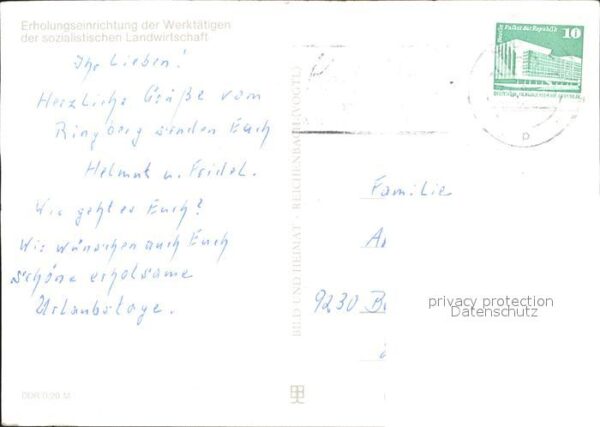 Erholungseinrichtung der Werktätigen
der sozialistischen Landwirtschaft
Ihr Lieben!
Herzliche Grüße vom
Ringberg senden Euch
Helmut u. Fridel.
Wie geht es Euch?
Wir wünschen auch Euch
schöne erholsame
Urlaubstage.
DDR 0,20 M
BILD UND HEIMAT · REICHENBACH (VOGTL)
10
Berlin, Palast der Republik
Familie
9230
privacy protection
Datenschutz